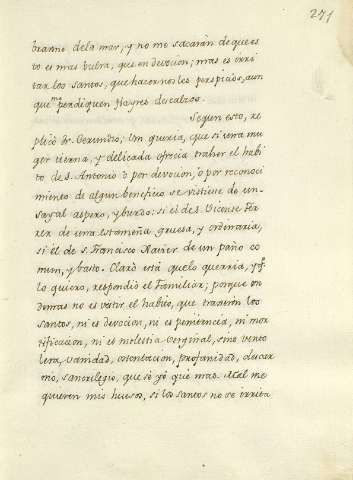 271
branme dela mar; y no me sacarán de que es
to es mas bulra, que en devocion; mas es irri
tar los santos, que hacer nos les perspicios, aun
que mas perdiquen frayres descalzos.
Segun esto, re
plicó Dr. Gerundio, Vm. querria, que si una mu
ger tierna, y delicada ofrecia traher el habi
to de S. Antonio ò por devocion, ò por reconoci
miento de algun beneficio se vistiese de un
sayal aspero, y burdo: si el de S. Vicente Fer
rer de una estameña gruesa, y ordinaria,
si el de S. Francisco Xavier de un paño co
mun, y basto. Claro está que lo querria, y q.e
lo quiero, respondió el Familiar; porque en
demas no es vestir el habito, que traxeron los
santos, ni es devocion, ni es penitencia, ni mor
tificacion, ni es molestia corginal, sino vento
lera, vanidad, ostentacion, profanidad, ducar
mo, sancrilegio, que sé yo qué mas. Mal me
quieren mis huesos, si los santos no se irrita